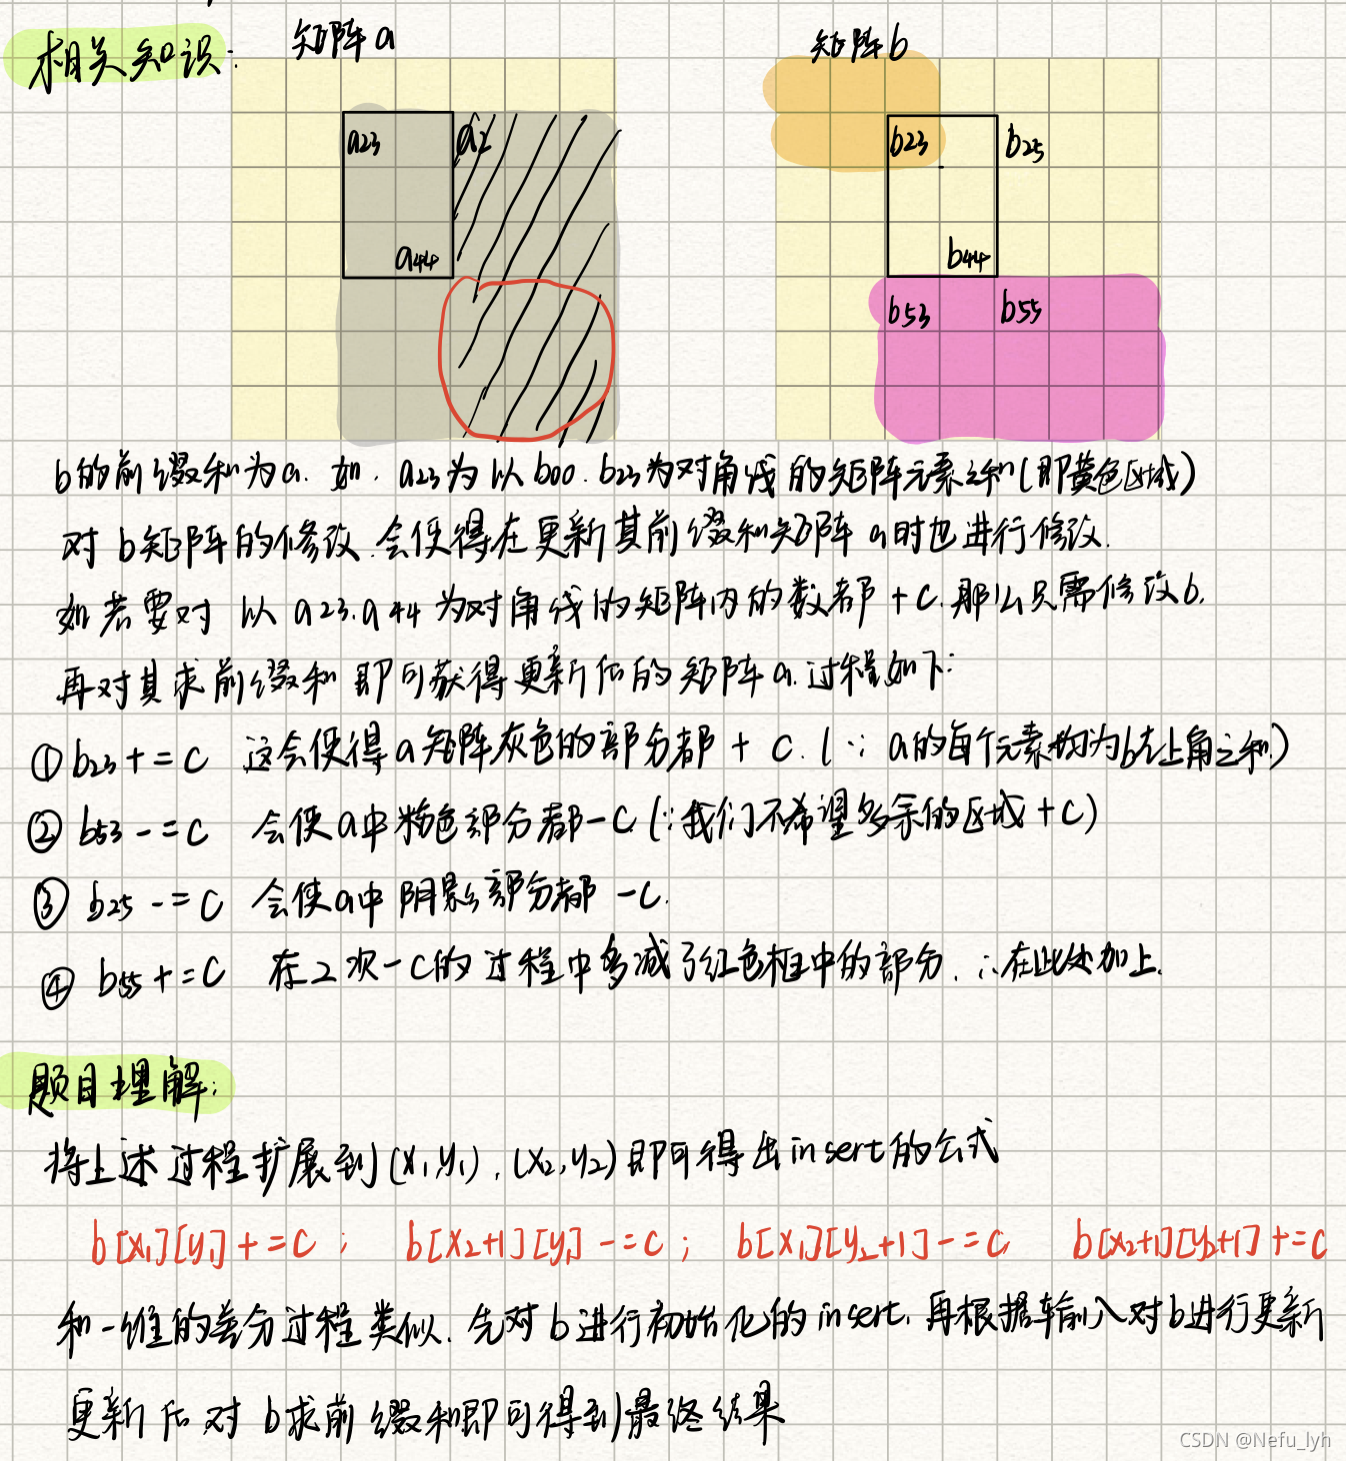 相关知识: 矩阵a 矩阵b
a23 a2 b23 b25
a44 b44
b53 b55
b的前缀和为a. 如. a23为以b00. b23为对角线的矩阵元素之和(即黄色区域)
对b矩阵的修改.会使得在更新其前缀和矩阵a时也进行修改.
如若要对以a23.a44为对角线的矩阵内的数都+c.那么只需修改b.
再对其求前缀和即可获得更新后的矩阵a.过程如下:
① b23+=c 这会使得a矩阵灰色的部分都+c.(∵a的每个元素均为b左上角之和)
② b53-=c 会使a中粉色部分都-c(∵我们不希望多余的区域+c)
③ b25-=c 会使a中阴影部分都-c.
④ b55+=c 在2次-c的过程中多减了红色框中的部分.∴在此处加上.
题目理解:
将上述过程扩展到(x1,y1),(x2,y2)即可得出insert的公式
b[x1][y1]+=c; b[x2+1][y1]-=c; b[x1][y2+1]-=c b[x2+1][y2+1]+=c
和一维的差分过程类似.先对b进行初始化的insert.再根据输入对b进行更新
更新后对b求前缀和即可得到最终结果
CSDN @Nefu_lyh